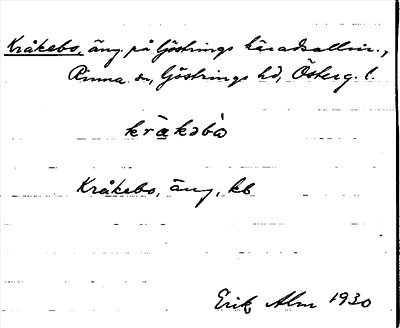 Kråkebo, äng på Göstrings häradsallm.,
Rinna sn, Göstrings hd, Österg. l.
kråkəbò
Kråkebo, äng, kb
Erik Alm 1930